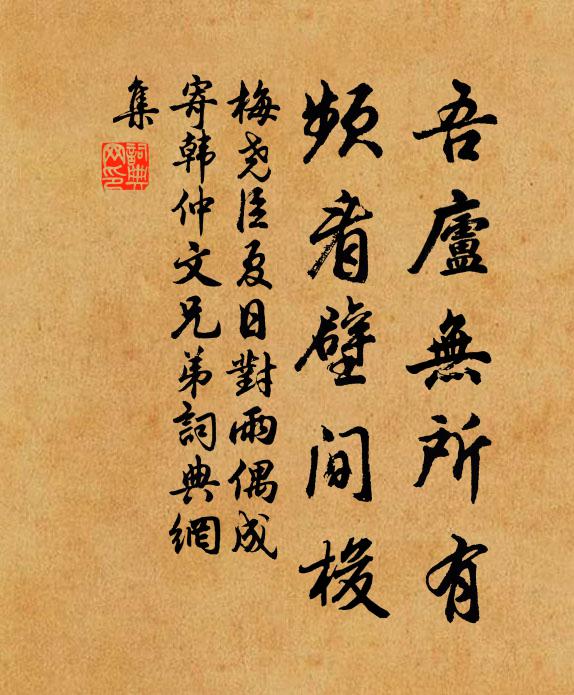 吾廬無所有
頻看壁間梭
梅堯臣夏日對雨偶成
寄韓仲文兄弟詞典網
集
詞典
网印